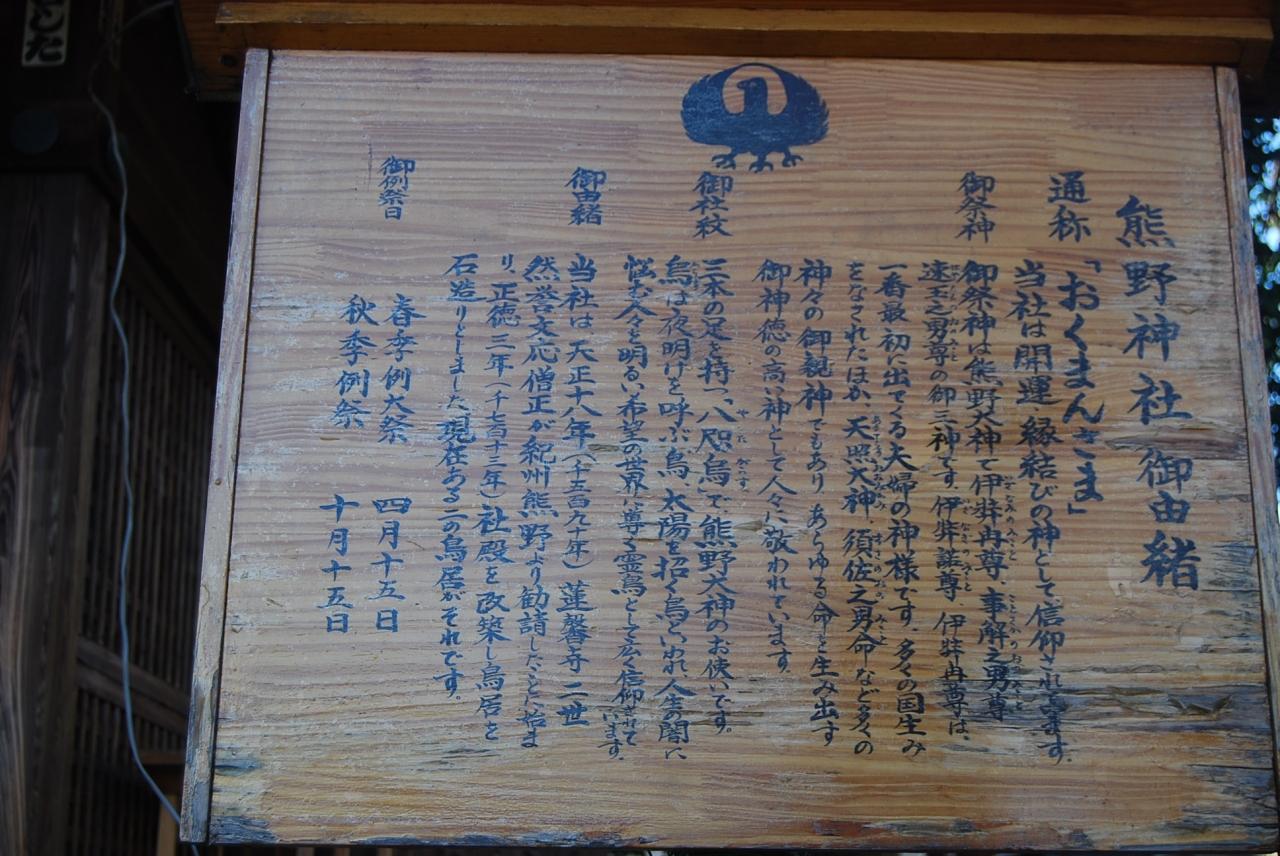 熊野神社御由緒
通称 「おくまんさま」
当社は開運、縁結びの神として、信仰されています。
御祭神 御祭神は熊野大神で伊弉冉尊、事解之男尊
速玉之男尊の御三神です。伊弉諾尊、伊弉冉尊は、
一番最初に出てくる夫婦の神様です。多くの国生み
をなされたほか、天照大神、須佐之男命など多くの
神々の御親神でもあり あらゆる命を生み出す
御神徳の高い神として人々に敬われています。
御社紋 三本の足を持つ、「八咫烏」で、熊野大神のお使いです。
烏は夜明けを呼ぶ烏、太陽を招く烏といわれ、人生の闇に
悩む人々を明るい希望の世界へ導く霊鳥として広く信仰されています。
御由緒 当社は、天正十八年(千五百九十年)蓮馨寺二世
然誉文応僧正が紀州熊野より勧請したことに始ま
り、正徳三年(千七百十三年)社殿を改築し鳥居を
石造りとしました、現在ある二の鳥居がそれです。
御例祭日 春季例大祭 四月十五日
秋季例祭 十月十五日
した